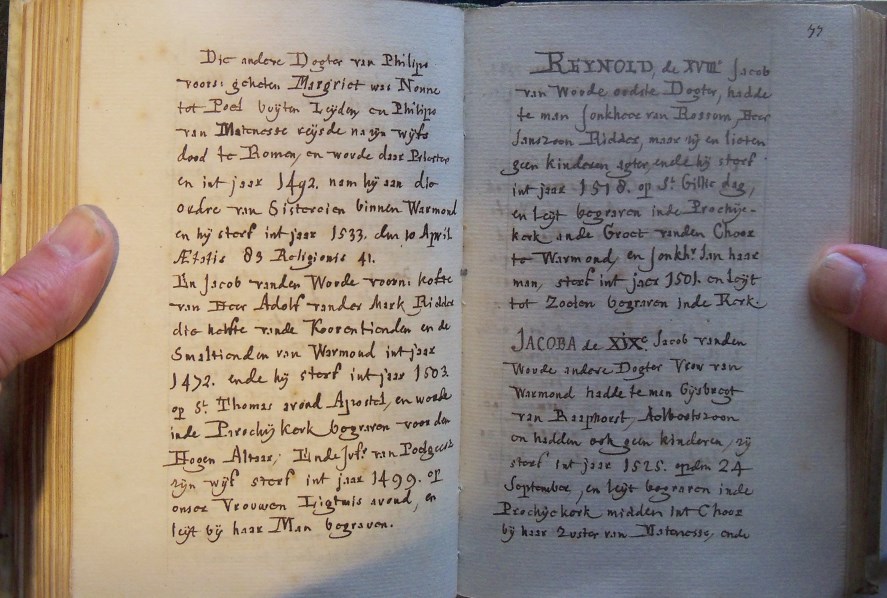 Die andere Dogter van Philips
voors: geheten Margriet was Nonne
tot Poel buijten Leijden en Philips
van Matenesse reijsde na zijn wijfs
dood te Romen, en worde daar Priester
en int jaar 1492. nam hij aan die
ordre van Sisteroien binnen Warmond
en hij sterf int jaar 1533. den 10 April
Ætatis 83 Religionis 41.
En Jacob vanden Woude voorn: kofte
van Heer Adolf vander Mark Ridder
die helfte vande Koorentienden en de
Smaltienden van Warmond int jaar
1472. ende hij sterf int jaar 1503
op St. Thomas avond Apostel, en worde
inde Prochij kerk begraven voor den
Hogen Altaar, Ende Jufr. van Poelgeest
zijn wijf sterf int jaar 1499. op
onser Vrouwen Ligtmis avond, en
leijt bij haar Man begraven.
77
REYNOLD, de XVIIIe. Jacob
van Woude oudste Dogter, hadde
te man Jonkheer van Rossem, Heer
Janszoon Ridder, maar zij en lieten
geen kinderen agter, ende hij sterf
int jaar 1518. op St. Gillis dag,
en leijt begraven inde Prochije-
kerk ande Groet vanden Choor
te Warmond, en Jonkhr. Jan haar
man, sterf int jaer 1501. en leijt
tot Zoelen begraven inde Kerk.
JACOBA de XIXe. Jacob vanden
Woude andere Dogter Vrou van
Warmond hadde te man Gijsbregt
van Raaphorst, Aelbertszoon
en hadden ook geen kinderen, zij
sterf int jaar 1525. opden 24
September, en leijt begraven inde
Prochije kerk midden int Choor
bij haar Zuster van Matenesse, ende